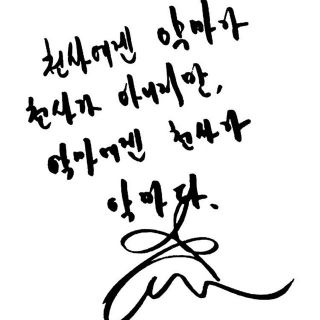 천사에겐 악마가
천사가 아니지만,
악마에겐 천사가
악마다.